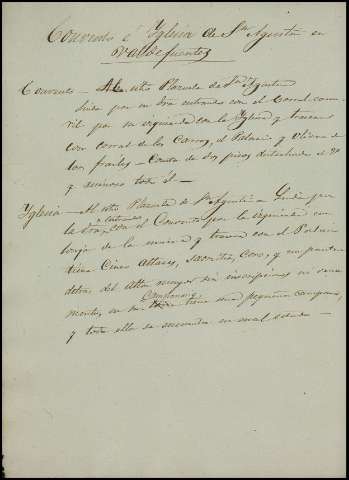 Convento é Yglesia de Sn Agustin en
Valdefuentes
Convento — Al sitio Plazuela de Sn Agustin
linda por su dra entrando con el Corral con-
vil por su izquierda con la Yglesia y trasera
con corral de los Carros, el Palacio y olivar de
los frailes — Consta de dos pisos
y ruinoso todo él —
Yglesia — Al sitio Plazuela de Sn Agustin — Linda por
la dra entrando con el Convento por la izquierda con
lonja de la misma y trasera con el Palacio
tiene Cinco Altares, Sacristia, Coro, y un panteon
detras del Altar mayor sin inscripciones en
mento, en su Campanario tiene una pequeña campana,
y toda ella se encuentra en mal estado —